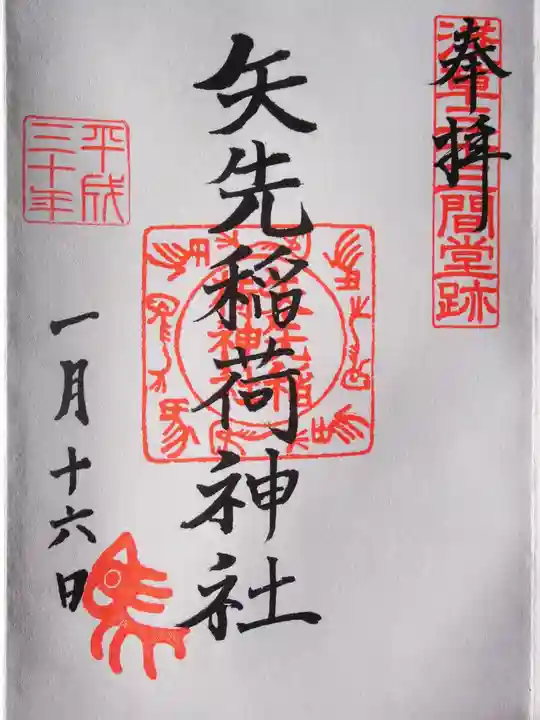 奉拝
浅草三十三間堂跡
矢先稲荷神社
平成
三十年
一月十六日